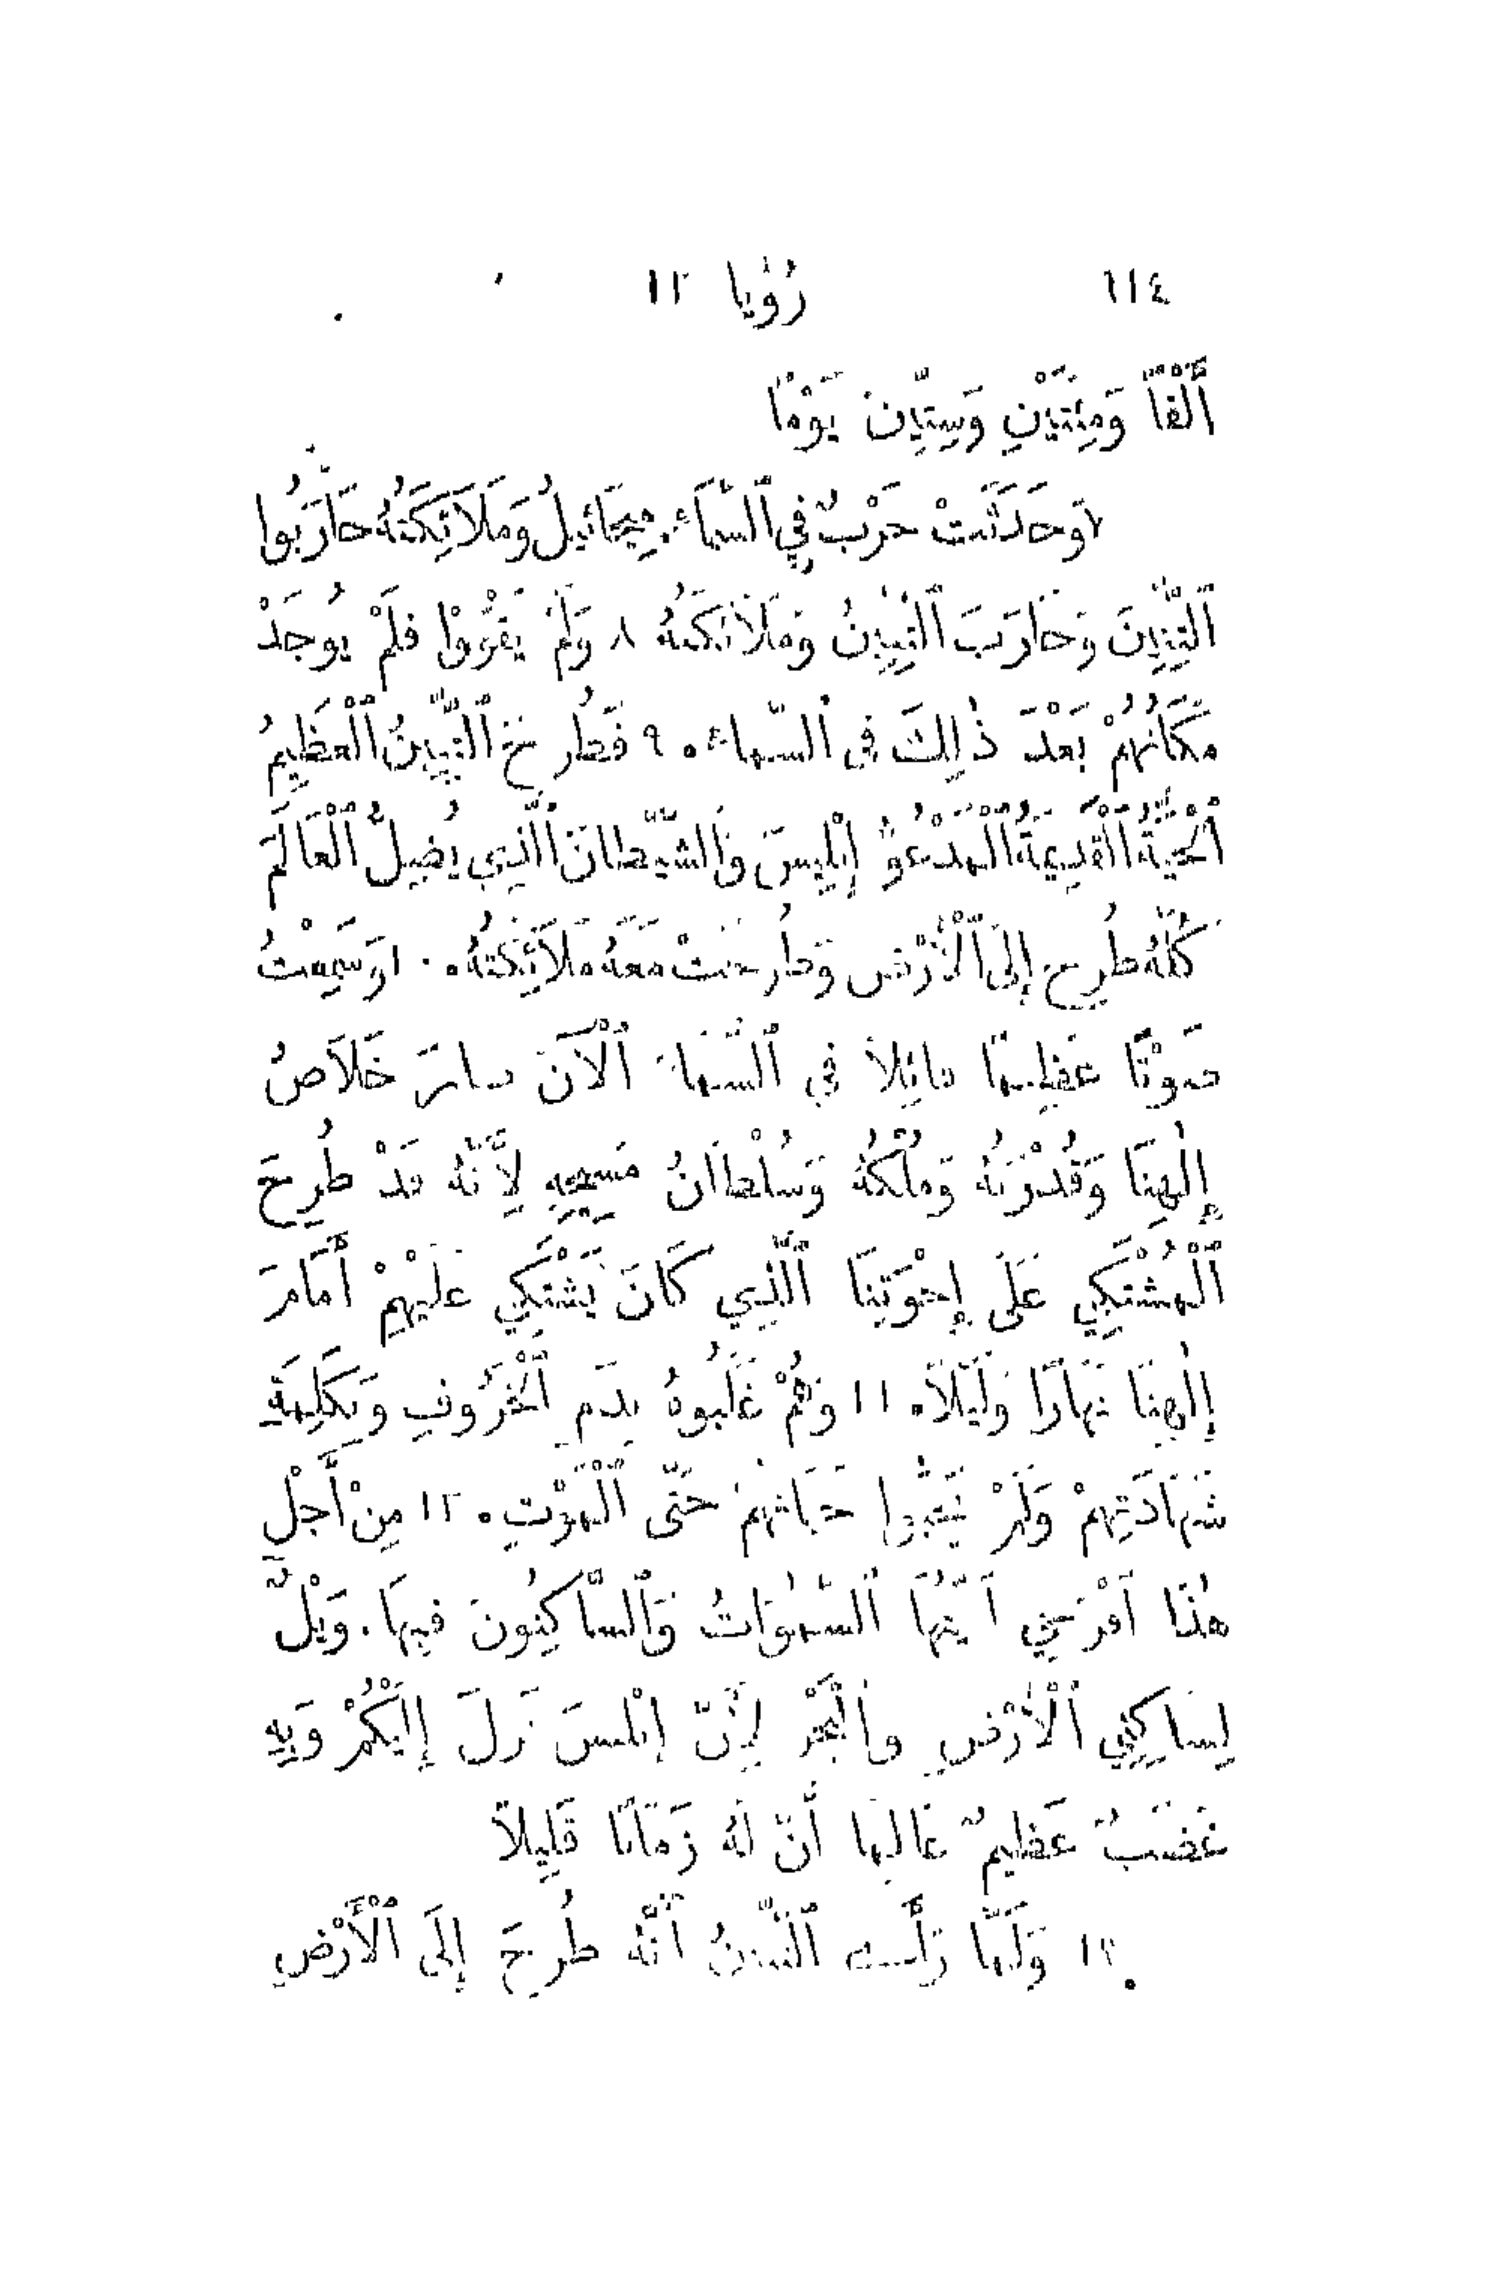 ٦١٤ رُؤْيا ١٢
أَلْفًا وَمِئَتَيْنِ وَسِتِّينَ يَوْمًا
٧ وَحَدَثَتْ حَرْبٌ فِي ٱلسَّمَاءِ. مِيخَائِيلُ وَمَلَائِكَتُهُ حَارَبُوا
ٱلتِّنِّينَ وَحَارَبَ ٱلتِّنِّينُ وَمَلَائِكَتُهُ ٨ وَلَمْ يَقْوَوْا فَلَمْ يُوجَدْ
مَكَانُهُمْ بَعْدَ ذٰلِكَ فِي ٱلسَّمَاءِ. ٩ فَطُرِحَ ٱلتِّنِّينُ ٱلْعَظِيمُ
ٱلْحَيَّةُ ٱلْقَدِيمَةُ ٱلْمَدْعُوُّ إِبْلِيسَ وَٱلشَّيْطَانَ ٱلَّذِي يُضِلُّ ٱلْعَالَمَ
كُلَّهُ طُرِحَ إِلَى ٱلْأَرْضِ وَطُرِحَتْ مَعَهُ مَلَائِكَتُهُ. ١٠ وَسَمِعْتُ
صَوْتًا عَظِيمًا قَائِلًا فِي ٱلسَّمَاءِ ٱلْآنَ صَارَ خَلَاصُ
إِلٰهِنَا وَقُدْرَتُهُ وَمُلْكُهُ وَسُلْطَانُ مَسِيحِهِ لِأَنَّهُ قَدْ طُرِحَ
ٱلْمُشْتَكِي عَلَى إِخْوَتِنَا ٱلَّذِي كَانَ يَشْتَكِي عَلَيْهِمْ أَمَامَ
إِلٰهِنَا نَهَارًا وَلَيْلًا. ١١ وَهُمْ غَلَبُوهُ بِدَمِ ٱلْخَرُوفِ وَبِكَلِمَةِ
شَهَادَتِهِمْ وَلَمْ يُحِبُّوا حَيَاتَهُمْ حَتَّى ٱلْمَوْتِ. ١٢ مِنْ أَجْلِ
هٰذَا ٱفْرَحِي أَيَّتُهَا ٱلسَّمٰوَاتُ وَٱلسَّاكِنُونَ فِيهَا. وَيْلٌ
لِسَاكِنِي ٱلْأَرْضِ وَٱلْبَحْرِ لِأَنَّ إِبْلِيسَ نَزَلَ إِلَيْكُمْ وَبِهِ
غَضَبٌ عَظِيمٌ عَالِمًا أَنَّ لَهُ زَمَانًا قَلِيلًا
١٣ وَلَمَّا رَأَى ٱلتِّنِّينُ أَنَّهُ طُرِحَ إِلَى ٱلْأَرْضِ